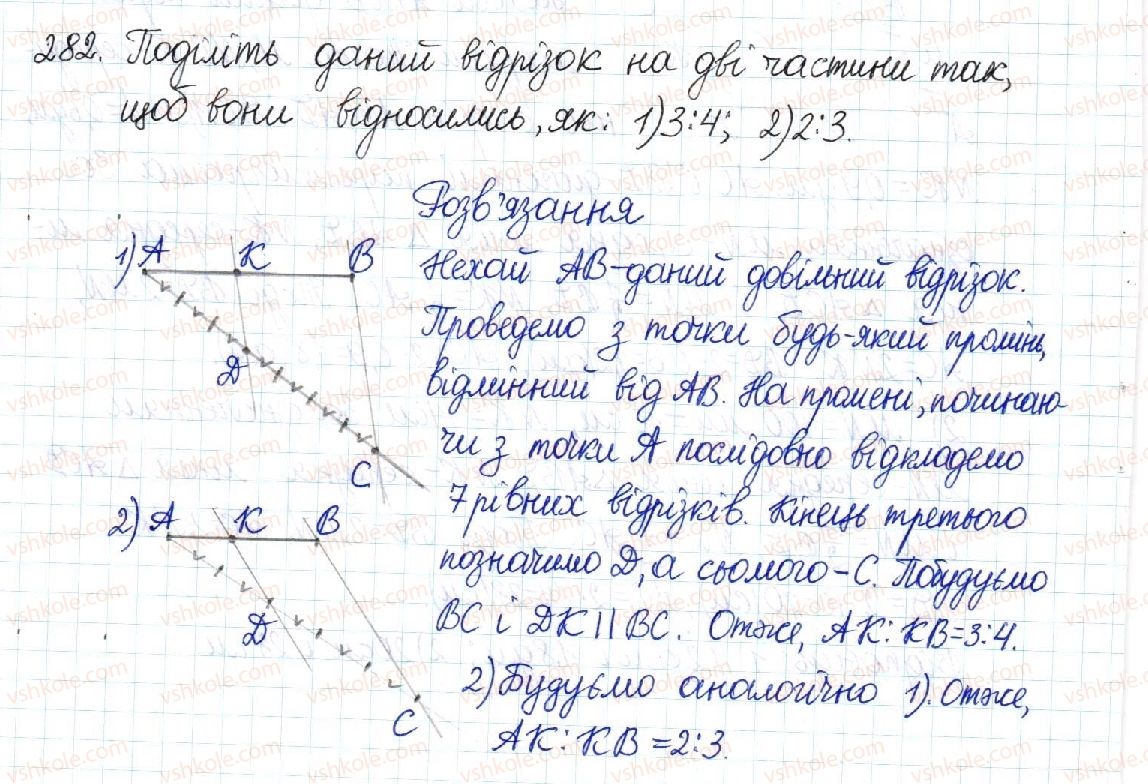 282. Поділіть даний відрізок на дві частини так,
щоб вони відносились, як: 1) 3:4; 2) 2:3.
Розв'язання
1) A K B
D
C
Нехай AB - даний довільний відрізок.
Проведемо з точки будь-який промінь,
відмінний від AB. На промені, починаю-
чи з точки A послідовно відкладемо
7 рівних відрізків. Кінець третього
позначимо D, а сьомого - C. Побудуємо
BC і DK || BC. Отже, AK:KB=3:4.
2) A K B
D
C
2) Будуємо аналогічно 1). Отже,
AK:KB=2:3.